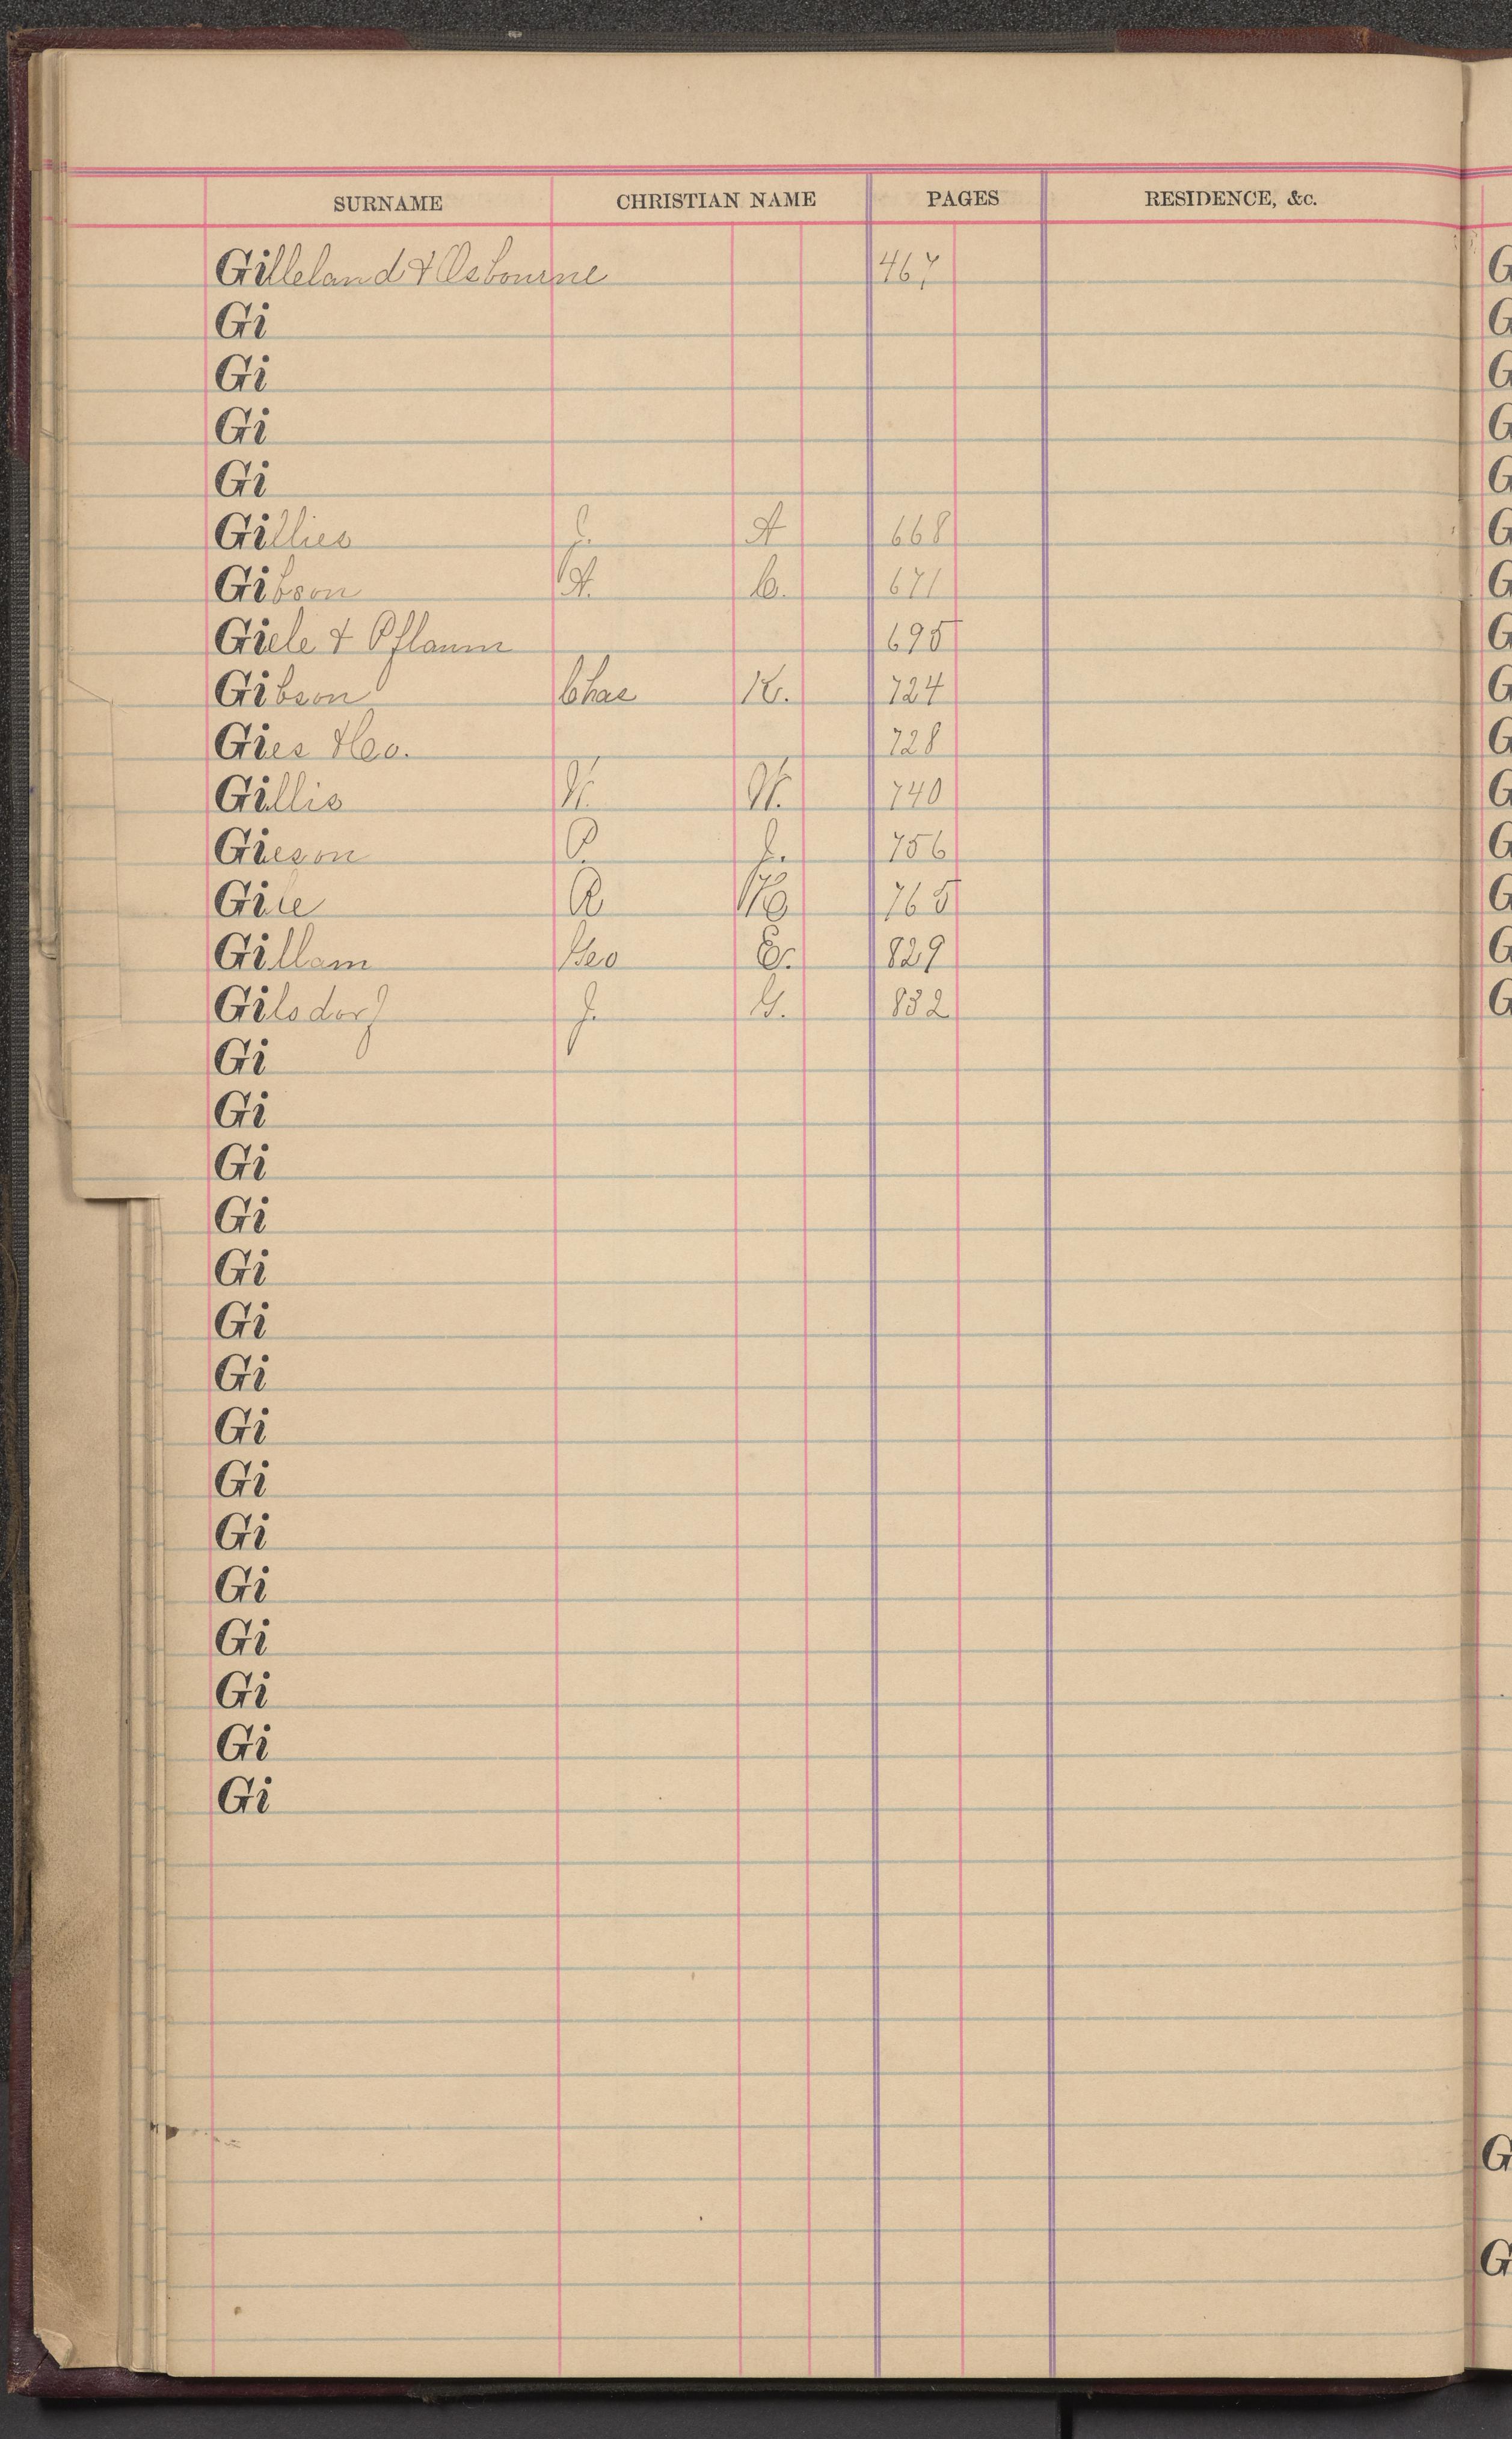 SURNAME CHRISTIAN NAME PAGES RESIDENCE, &c.
Gilleland & Osbourne 467
Gi
Gi
Gi
Gi
Gillies J. A 668
Gibson A. C. 671
Giele & Pflaum 695
Gibson Chas K. 724
Gies & Co. 728
Gillis N. N. 740
Gieson P. J. 756
Gile R 765
Gillam Geo E. 829
Gilsdorf J. G. 832
Gi
Gi
Gi
Gi
Gi
Gi
Gi
Gi
Gi
Gi
Gi
Gi
Gi
Gi
Gi